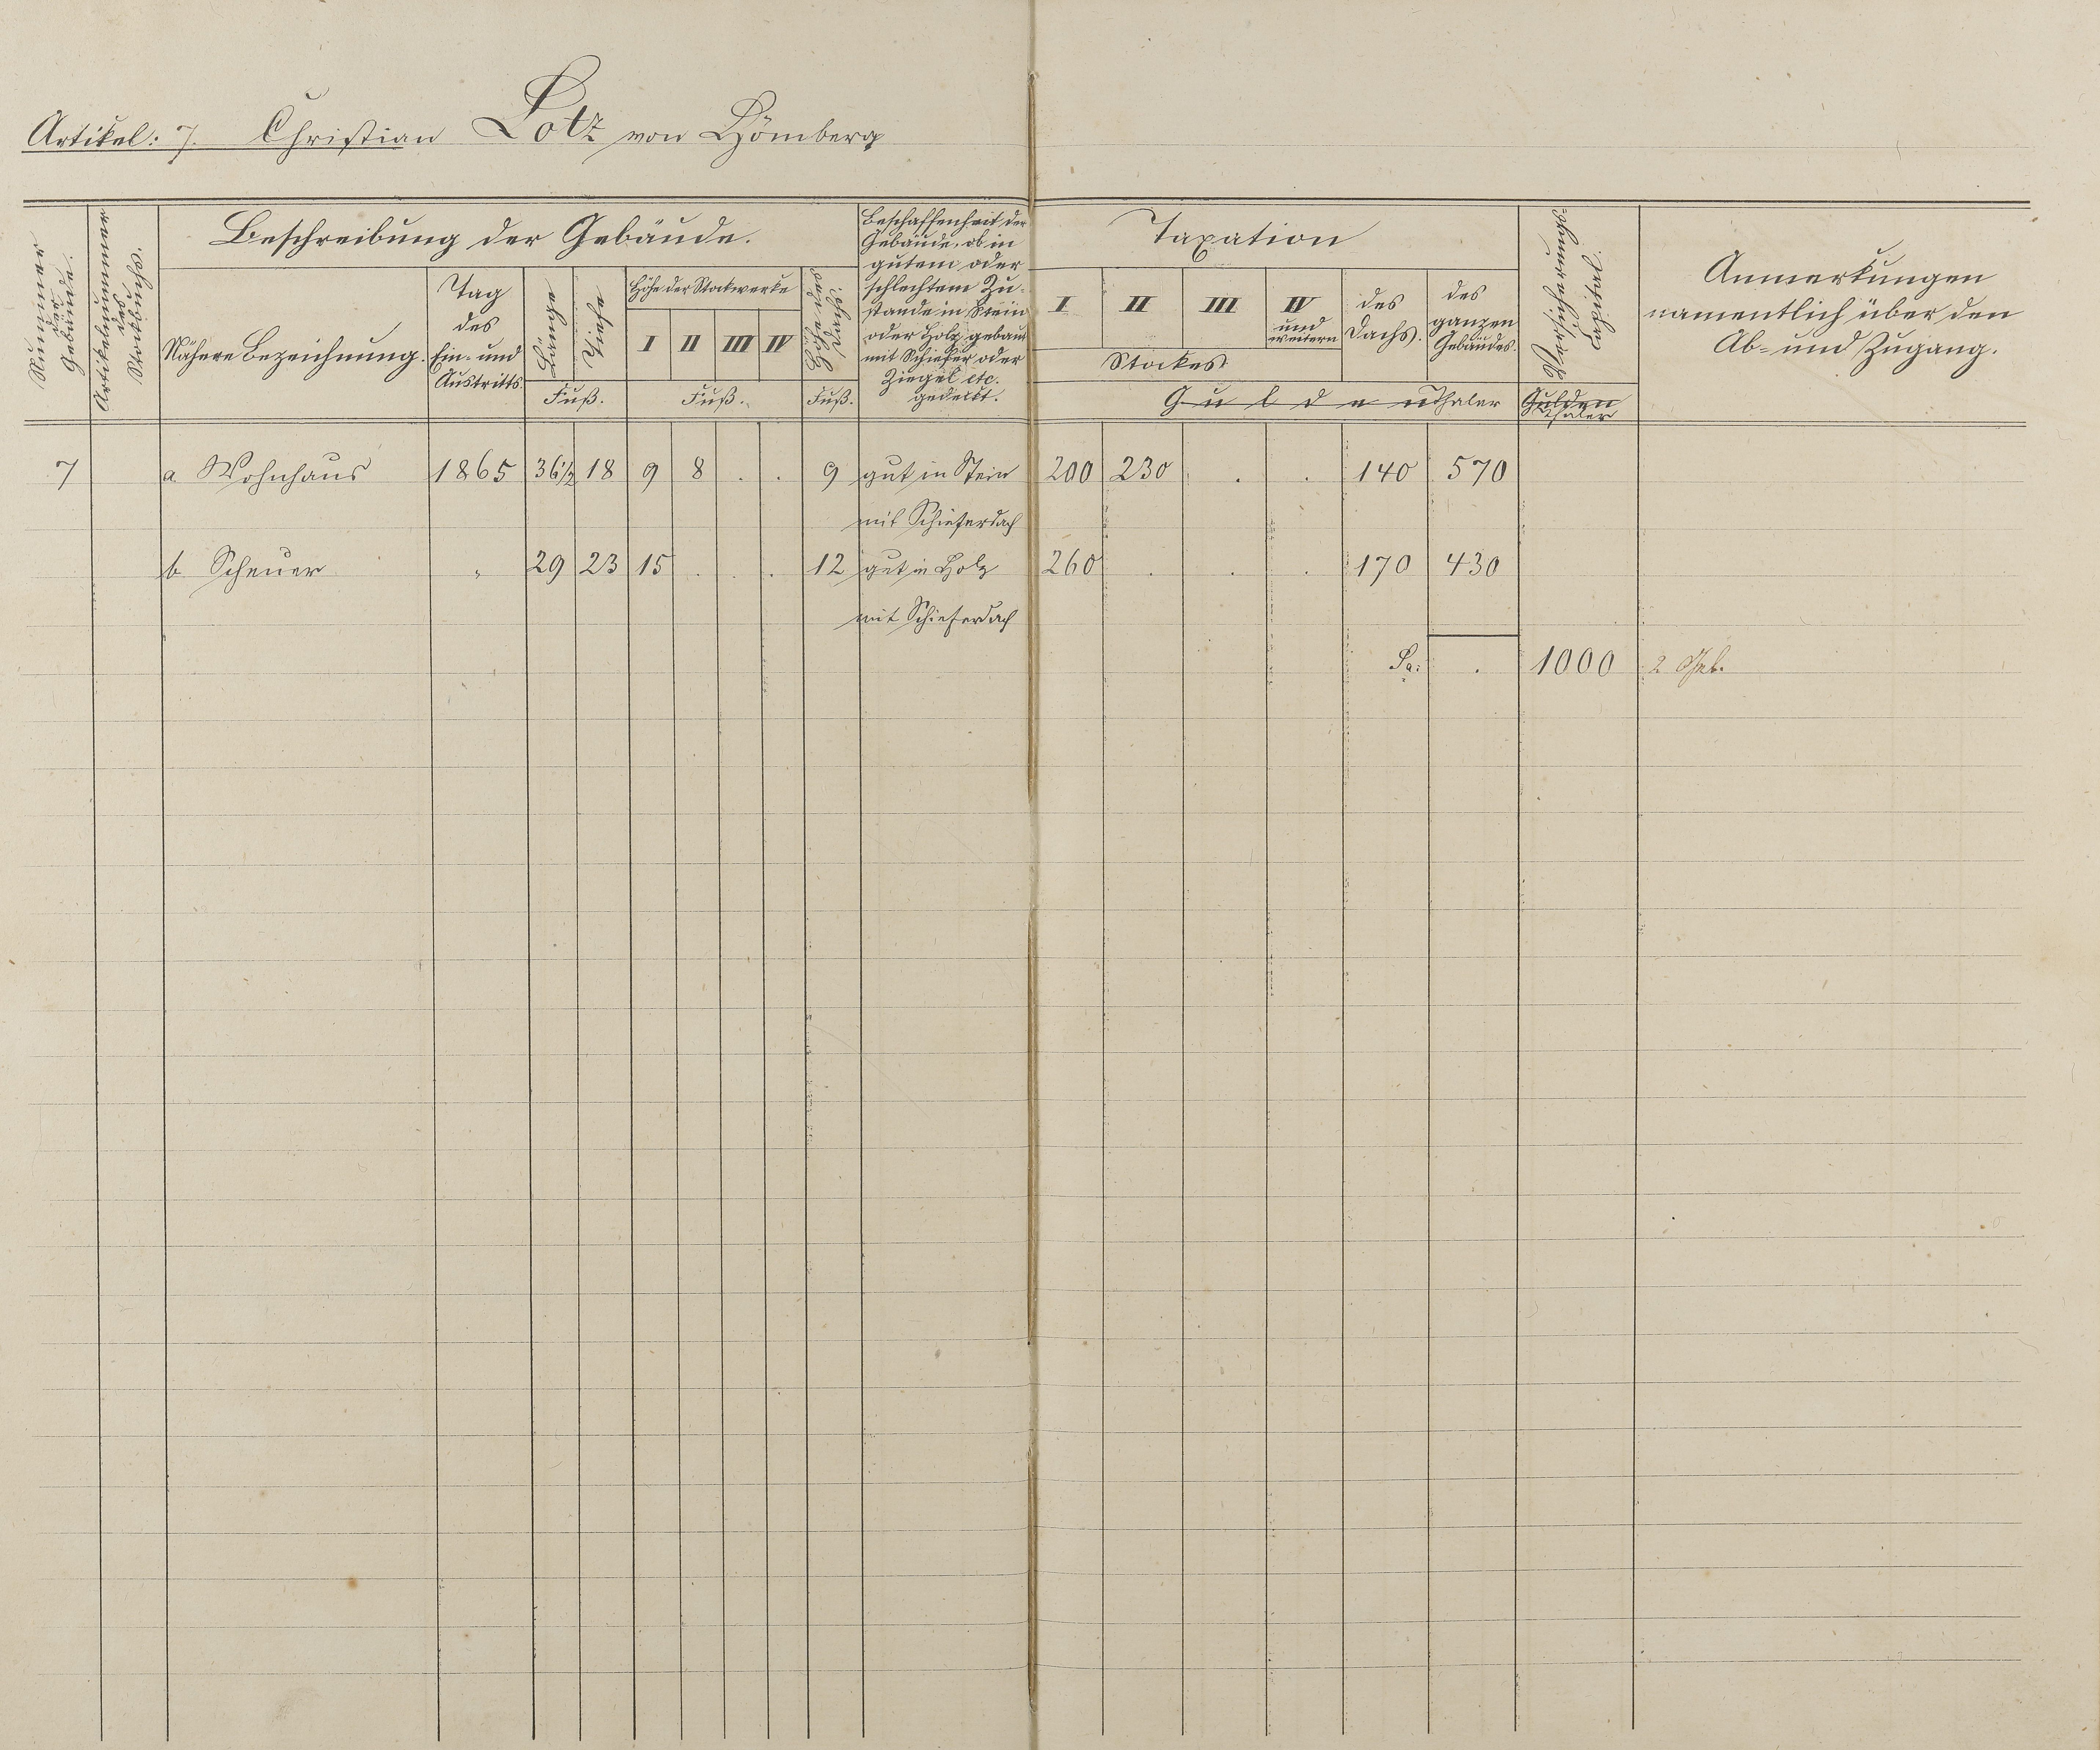 Artikel: 7. Christian Lotz von Hömberg
Nummer der Gebäude.
Artikelnummer des Stockbuchs.
Beschreibung der Gebäude.
Nähere Bezeichnung.
Tag
des
Ein- und
Austritts.
Länge
Tiefe
Fuß.
Höhe der Stockwerke
I II III IV
Fuß.
Höhe des Dachs.
Fuß.
Beschaffenheit der
Gebäude, ob in
gutem oder
schlechtem Zu-
stande in Stein
oder Holz gebaut
mit Schiefer oder
Ziegel etc.
gedeckt.
Taxation
I II III IV
und
weitern
Stockes
des
Dachs.
des
ganzen
Gebäudes.
Gulden Thaler
Versicherungs-
Capital.
Gulden
Thaler
Anmerkungen
namentlich über den
Ab- und Zugang.
7 a Wohnhaus 1865 36½ 18 9 8 . . 9 gut in Stein 200 230 . . 140 570
mit Schieferdach
b Scheuer " 29 23 15 . . . 12 gut in Holz 260 . . . 170 430
mit Schieferdach
Sa: . 1000 2 Geb.